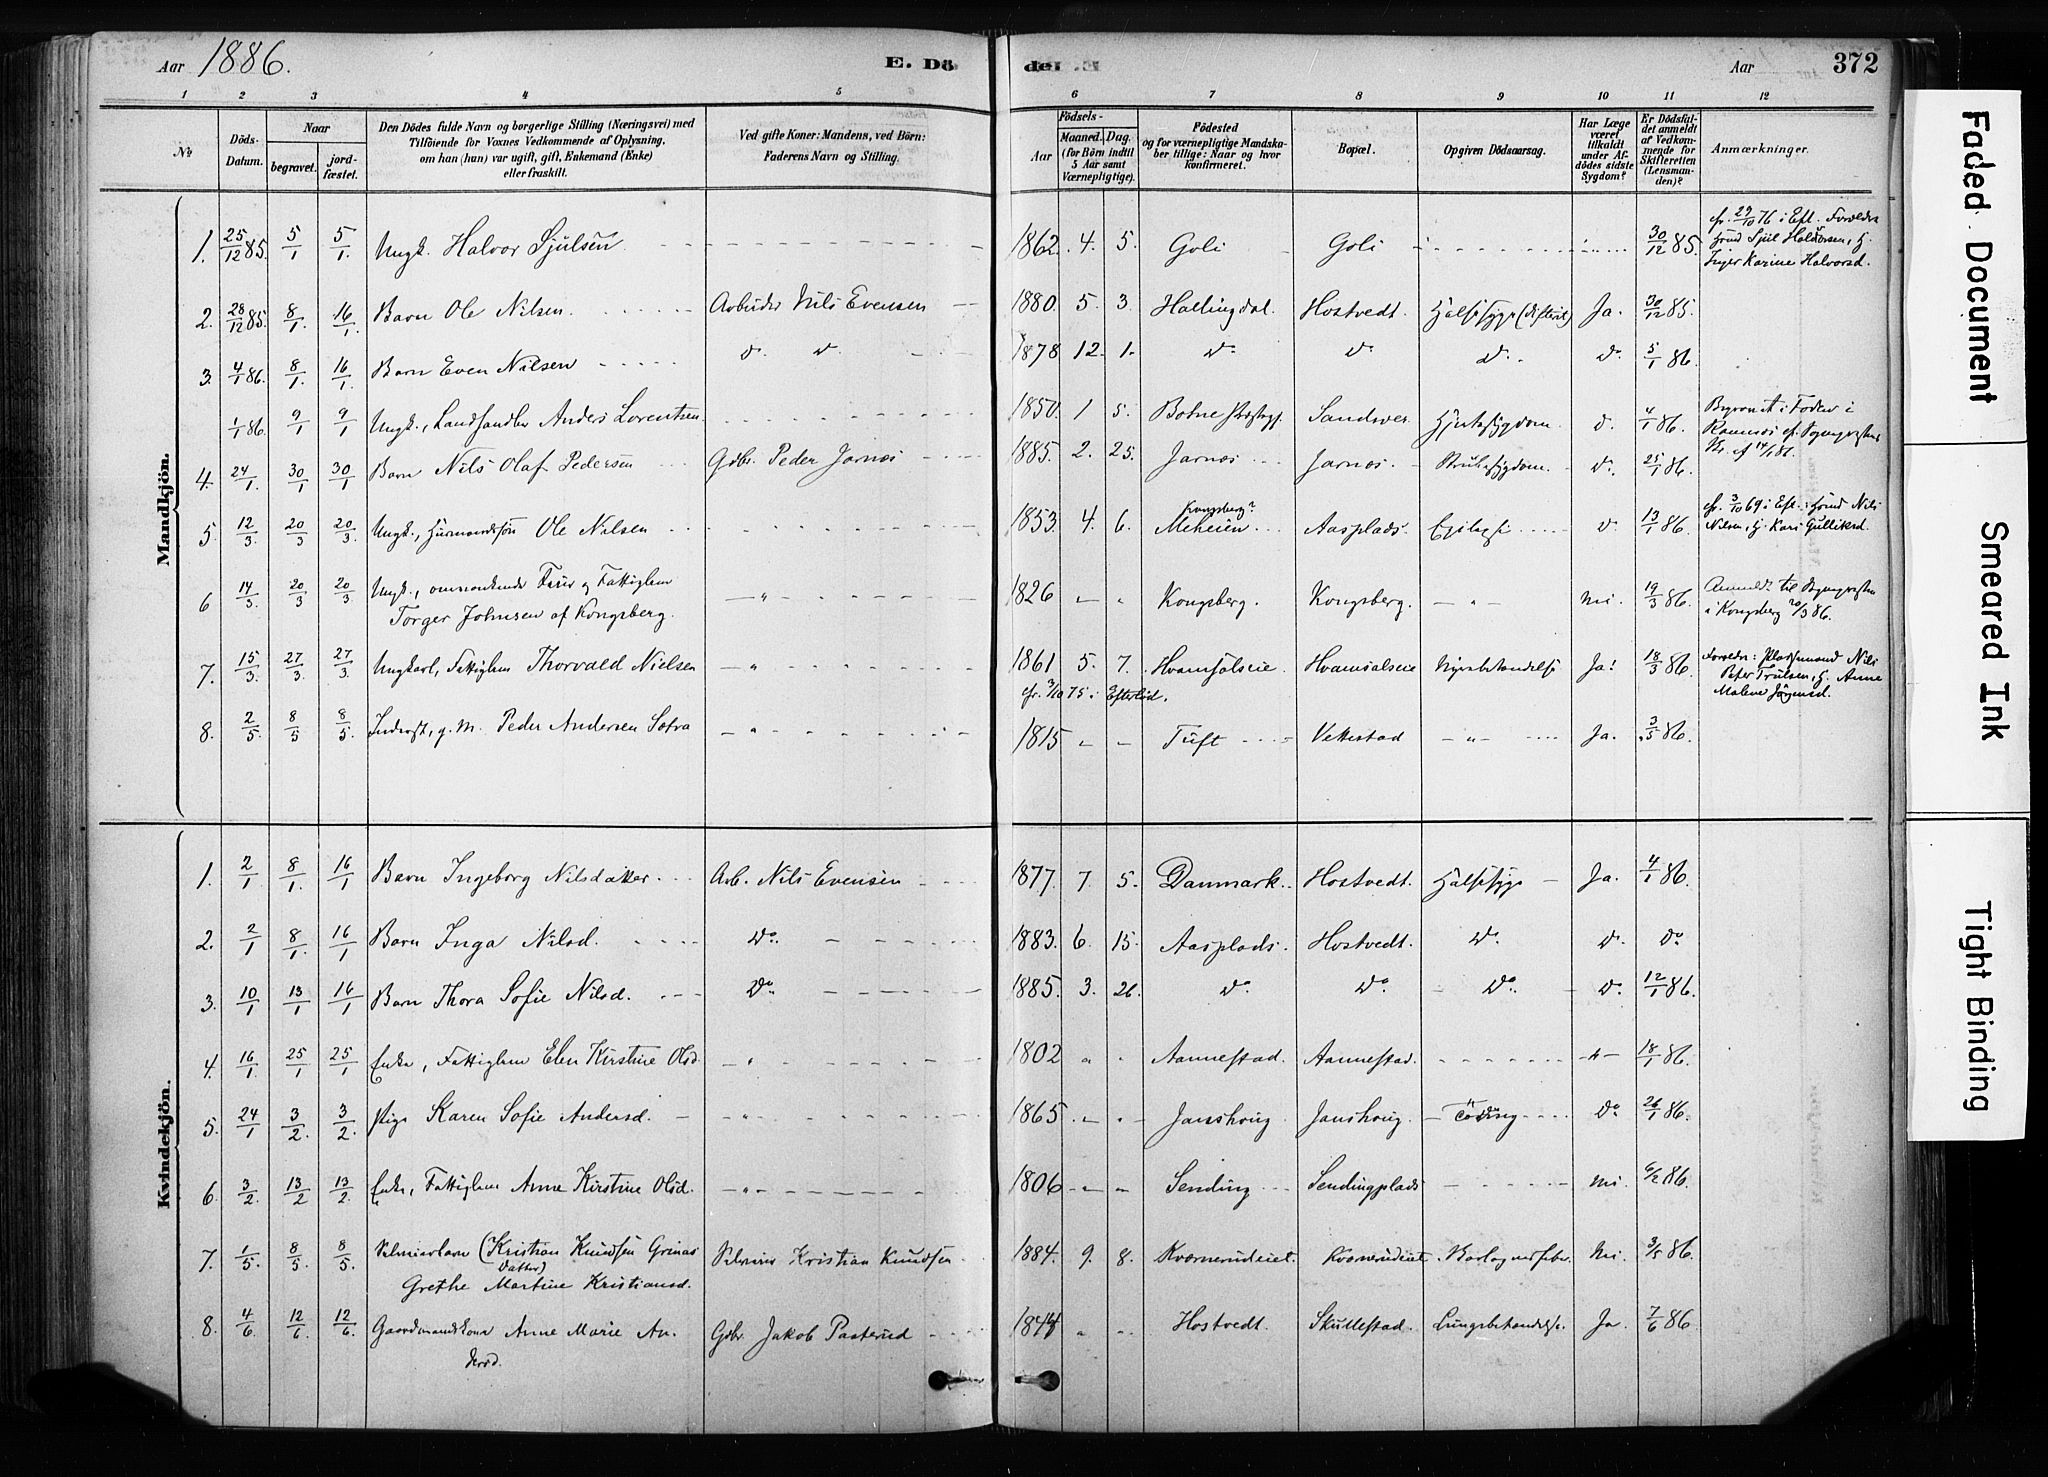 Aar 1886. E. Dö de. Aar 372
1 2 3 4 5 6 7 8 9 10 11 12
No Döds-Datum. Naar begravet. jord-fæstet. Den Dödes fulde Navn og borgerlige Stilling (Næringsvei) med Tilföiende for Voxnes Vedkommende af Oplysning, om han (hun) var ugift, gift, Enkemand (Enke) eller fraskilt. Ved gifte Koner: Mandens, ved Börn: Faderens Navn og Stilling. Födsels- Aar Maaned. Dag. (for Börn indtil 5 Aar samt Værnepligtige). Födested og for værnepligtige Mandska-ber tillige: Naar og hvor konfirmeret. Bopæl. Opgiven Dödsaarsag. Har Læge været tilkaldt under Af-dödes sidste Sygdom? Er Dödsfal-det anmeldt af Vedkom-mende for Skifteretten (Lensman-den)? Anmærkninger.
Mandkjön.
1. 25/12 85. 5/1 5/1. Ungk. Halvor Sjulsen 1862. 4. 5. Goli Goli 30/12 85. cfr. 29/10 76 i Eft. Forældre Sjul Halvorsen, Inger Karine Halvorsd.
2. 28/12 85. 8/1. 16/1. Barn Ole Nilsen. Arbeider Nils Evensen 1880. 5. 3. Hallingdal. Hostvedt. Halssyge (difterit) Ja. 30/12 85.
3. 4/1 86. 8/1. 16/1. Barn Even Nilsen do. do. 1878 12. 1. do do do. do. 5/1 86.
1/1 86. 9/1 9/1 Ungk., Landhandler Anders Lorentsen 1850. 1 5. Botne Sandsvær Hjertesygdom. d. 4/1 86. Begravet i
4. 24/1. 30/1 30/1 Barn Nils Olaf Pedersen Gdbr. Peder Jarnæs 1885. 2. 25. Jarnæs Jarnæs. d. 25/1 86.
5. 12/3. 20/3 20/3 Ungk., Ole Nilsen 1853. 4. 6. Kongsberg? Meheien Aasplads. Epilepsi d. 13/1 86. cfr. 3/10 69 i Eft. Nils Nilsen, Kari Gulliksd.
6 14/3. 20/3 20/3 Ungk., omvankende Fattiglem
Torger Johnsen af Kongsberg. 1826 Kongsberg. Kongsberg. Nei. 19/3 86. Anmeldt til i Kongsberg 20/3 86.
7. 15/3. 27/3 27/3. Ungkarl, Fattiglem Thorvald Nielsen 1861 5. 7. Hvamsalseie Hvamsalseie Nyrebetændelse Ja! 18/3 86. Forældre: Pladsmand Nils Peter Trulsen, Anne Malene
cfr. 3/10 75 i Efterlød.
8. 2/5. 8/5 8/5. Inderst, g. M. Peder Andersen Sætra 1815 Tuft Vettestad Ja. 3/5 86.
Kvindekjön.
1. 2/1 8/1. 16/1 Barn Ingeborg Nilsdatter Arb. Nils Evensen 1877. 7. 5. Danmark. Hostvedt. Halssyge Ja. 4/1 86.
2. 2/1 8/1. 16/1 Barn Inga Nilsd. Do. 1883. 6. 15. Aasplads. Hostvedt. do. do. do
3. 10/1 13/1 16/1 Barn Thora Sofie Nilsd. Do 1885. 3. 26. do do do. do. 12/1 86.
4. 16/1 25/1 25/1 Enke, Fattiglem Elen Kirstine Olsd. 1802 Aannestad. Aannestad. 18/1 86.
5. 24/1 3/2. 3/2. Pige Karen Sofie Andersd. 1865. Janshoug Janshoug. Tæring do 26/1 86.
6. 3/2. 13/2 13/2. Enke, Fattiglem Anne Kirstine Olsd. 1806 Sending Sendingplads Nei. 6/2 86.
7. 1/5. 8/5. 8/5. Selveierbarn (Kristian Knudsen Grinas
Datter)
Grethe Martine Kristiansd. Selveier Kristian Knudsen 1884. 9. 8. Kværnerudeiet. Kværnerudeiet. Nei. 3/5 86.
8. 4/6 12/6. 12/6. Gaardmandskone Anne Marie An-
dersd. Gdbr. Jakob Pasterud 1844 Hostvedt. Skullestad. Lungebetændelse. Ja 7/6 86
Faded Document
Smeared Ink
Tight Binding